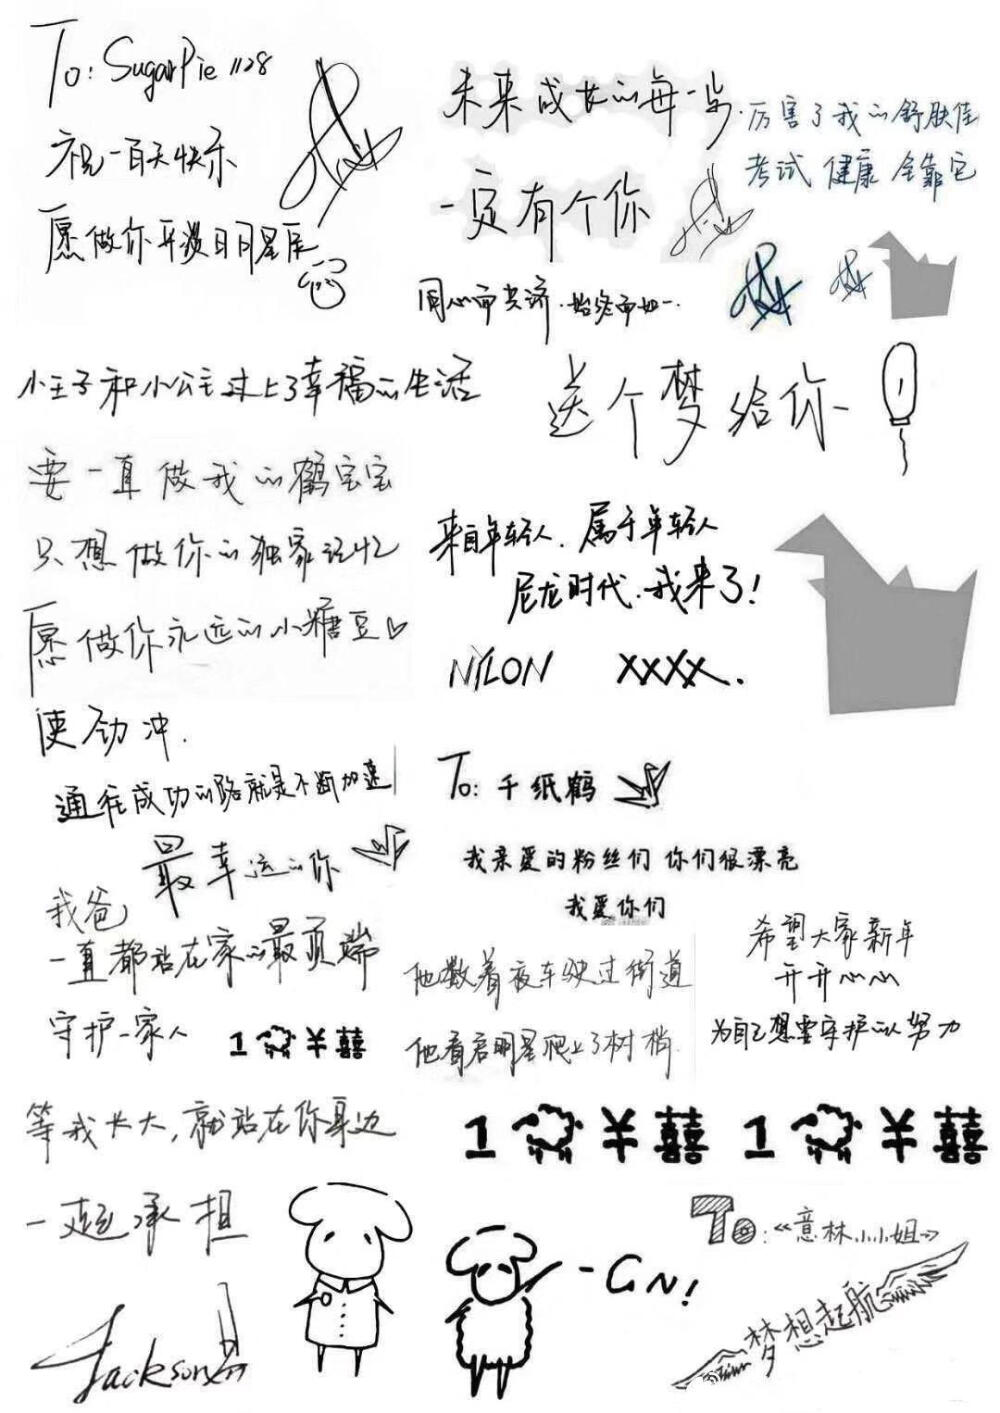 To: SugarPie 1128
祝一百天快乐
愿做你开黎明星辰
未来成长的每一步
一定有个你
厉害了我的舒肤佳
考试 健康 全靠它
同心而共济·始终而如一.
小王子和小公主过上了幸福的生活
送个梦给你
要一直做我的鹤宝宝
只想做你的独家记忆
愿做你永远的小糖豆♡
来自年轻人.属于年轻人
尼龙时代.我来了!
NYLON XXXX.
使劲冲.
通往成功的路就是不断加速
最幸运的你
To: 千纸鹤
我亲爱的粉丝们 你们很漂亮
我爱你们
我爸
一直都站在家的最顶端
守护一家人
1 ¥囍
他数着夜车驶过街道
他看启明星爬上了树梢.
希望大家新年
开开心心
为自己想要守护的人努力
等我长大,就站在你身边
一起承担
1 ¥囍 1 ¥囍
Jackson
-GN!
To:《意林小小姐》
梦想起航